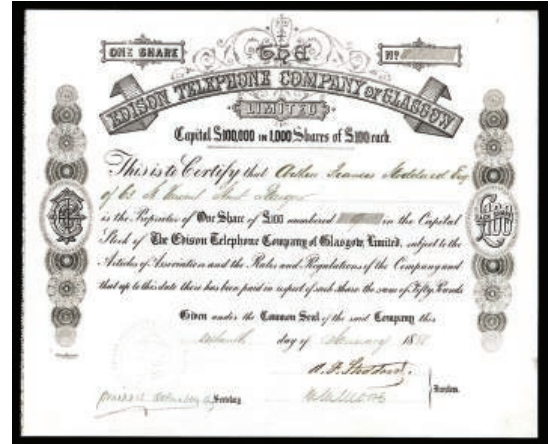 ONE SHARE
The
Nº
EDISON TELEPHONE COMPANY OF GLASGOW
LIMITED
Capital £100,000 in 1,000 Shares of £100 each.
This is to Certify that Francis Esq
of 63 St Vincent Street
is the Proprietor of One Share of £100 numbered in the Capital
Stock of The Edison Telephone Company of Glasgow, Limited, subject to the
Articles of Association and the Rules and Regulations of the Company and
that up to this date there has been paid in respect of such share the sum of Fifty Pounds
EACH SHARE
£100
Given under the Common Seal of the said Company this
day of 18
Secretary
Directors.